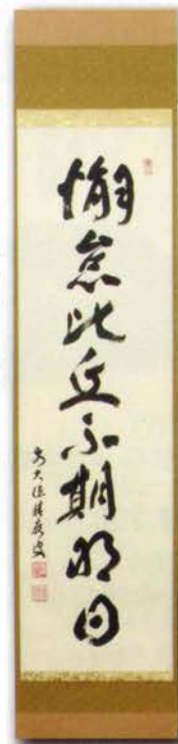 懈怠比丘不期明日
大徳